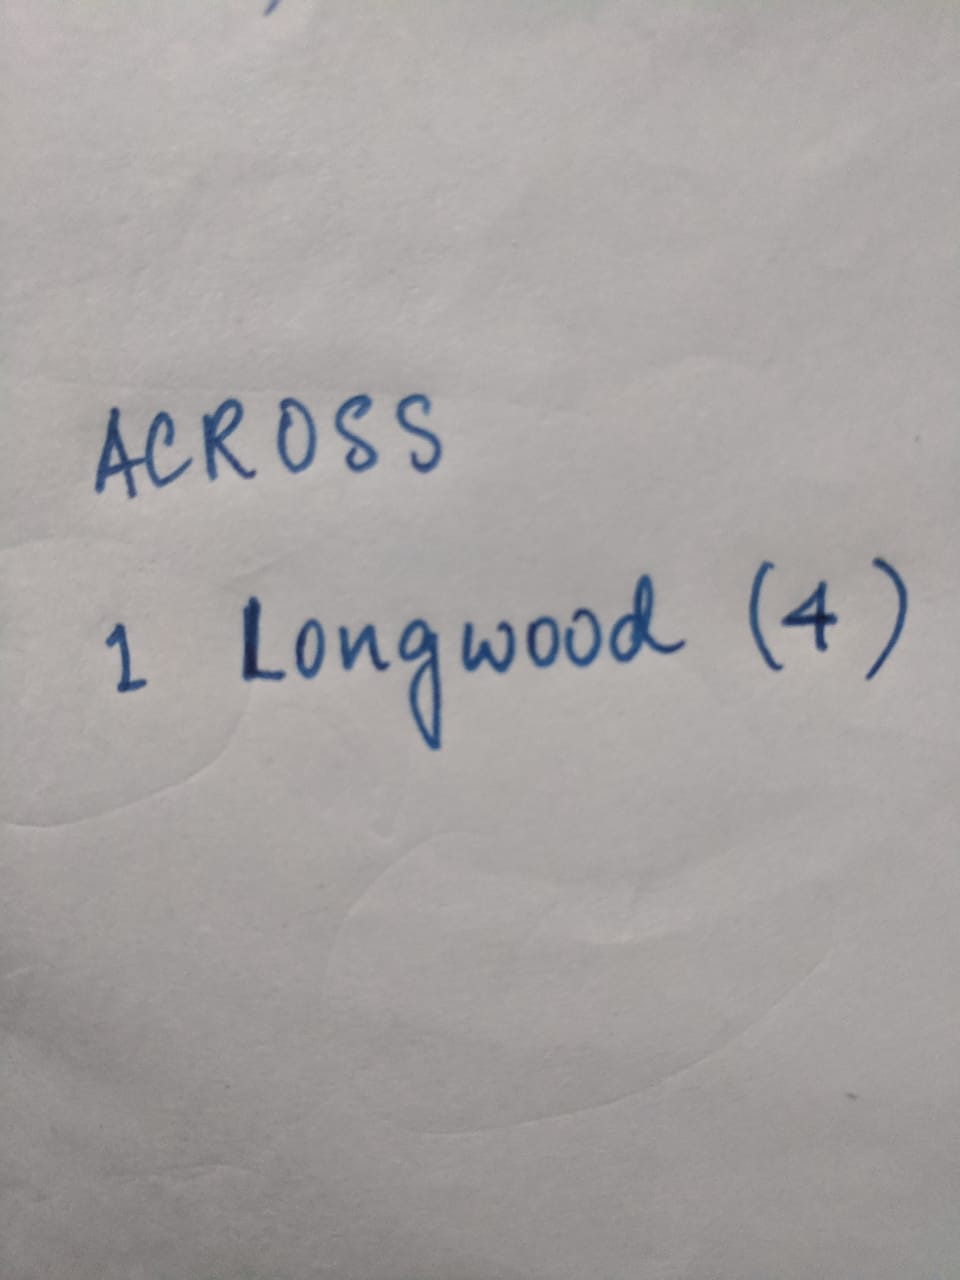 ACROSS
1 Longwood (4)